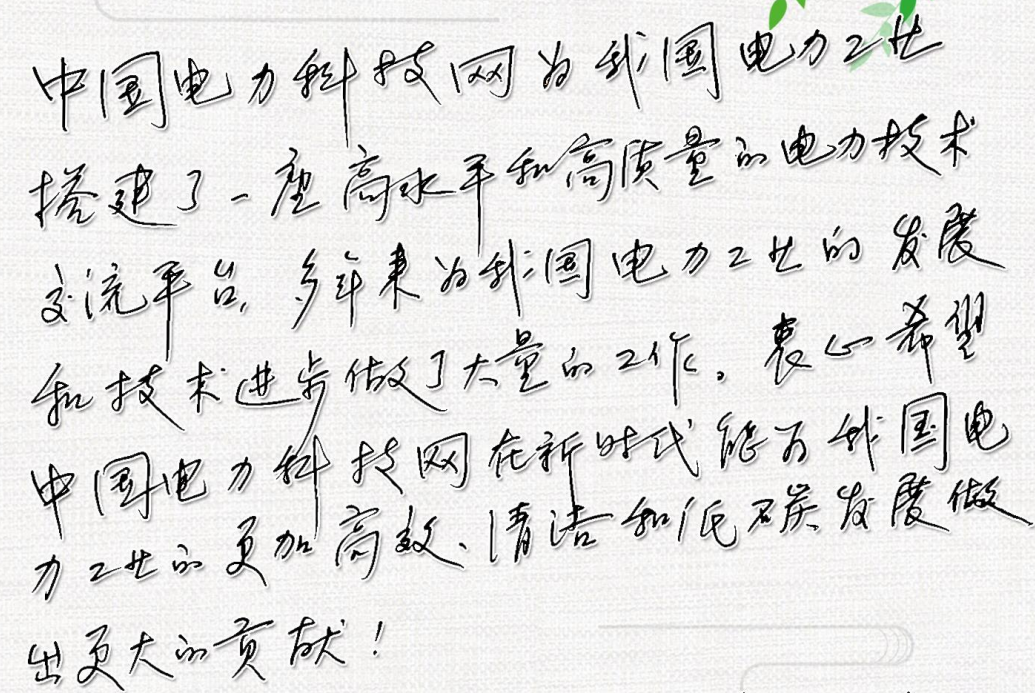 中国电力科技网为我国电力工业
搭建了一座高水平和高质量的电力技术
交流平台,多年来为我国电力工业的发展
和技术进步做了大量的工作。衷心希望
中国电力科技网在新时代能为我国电
力工业的更加高效、清洁和低碳发展做
出更大的贡献!